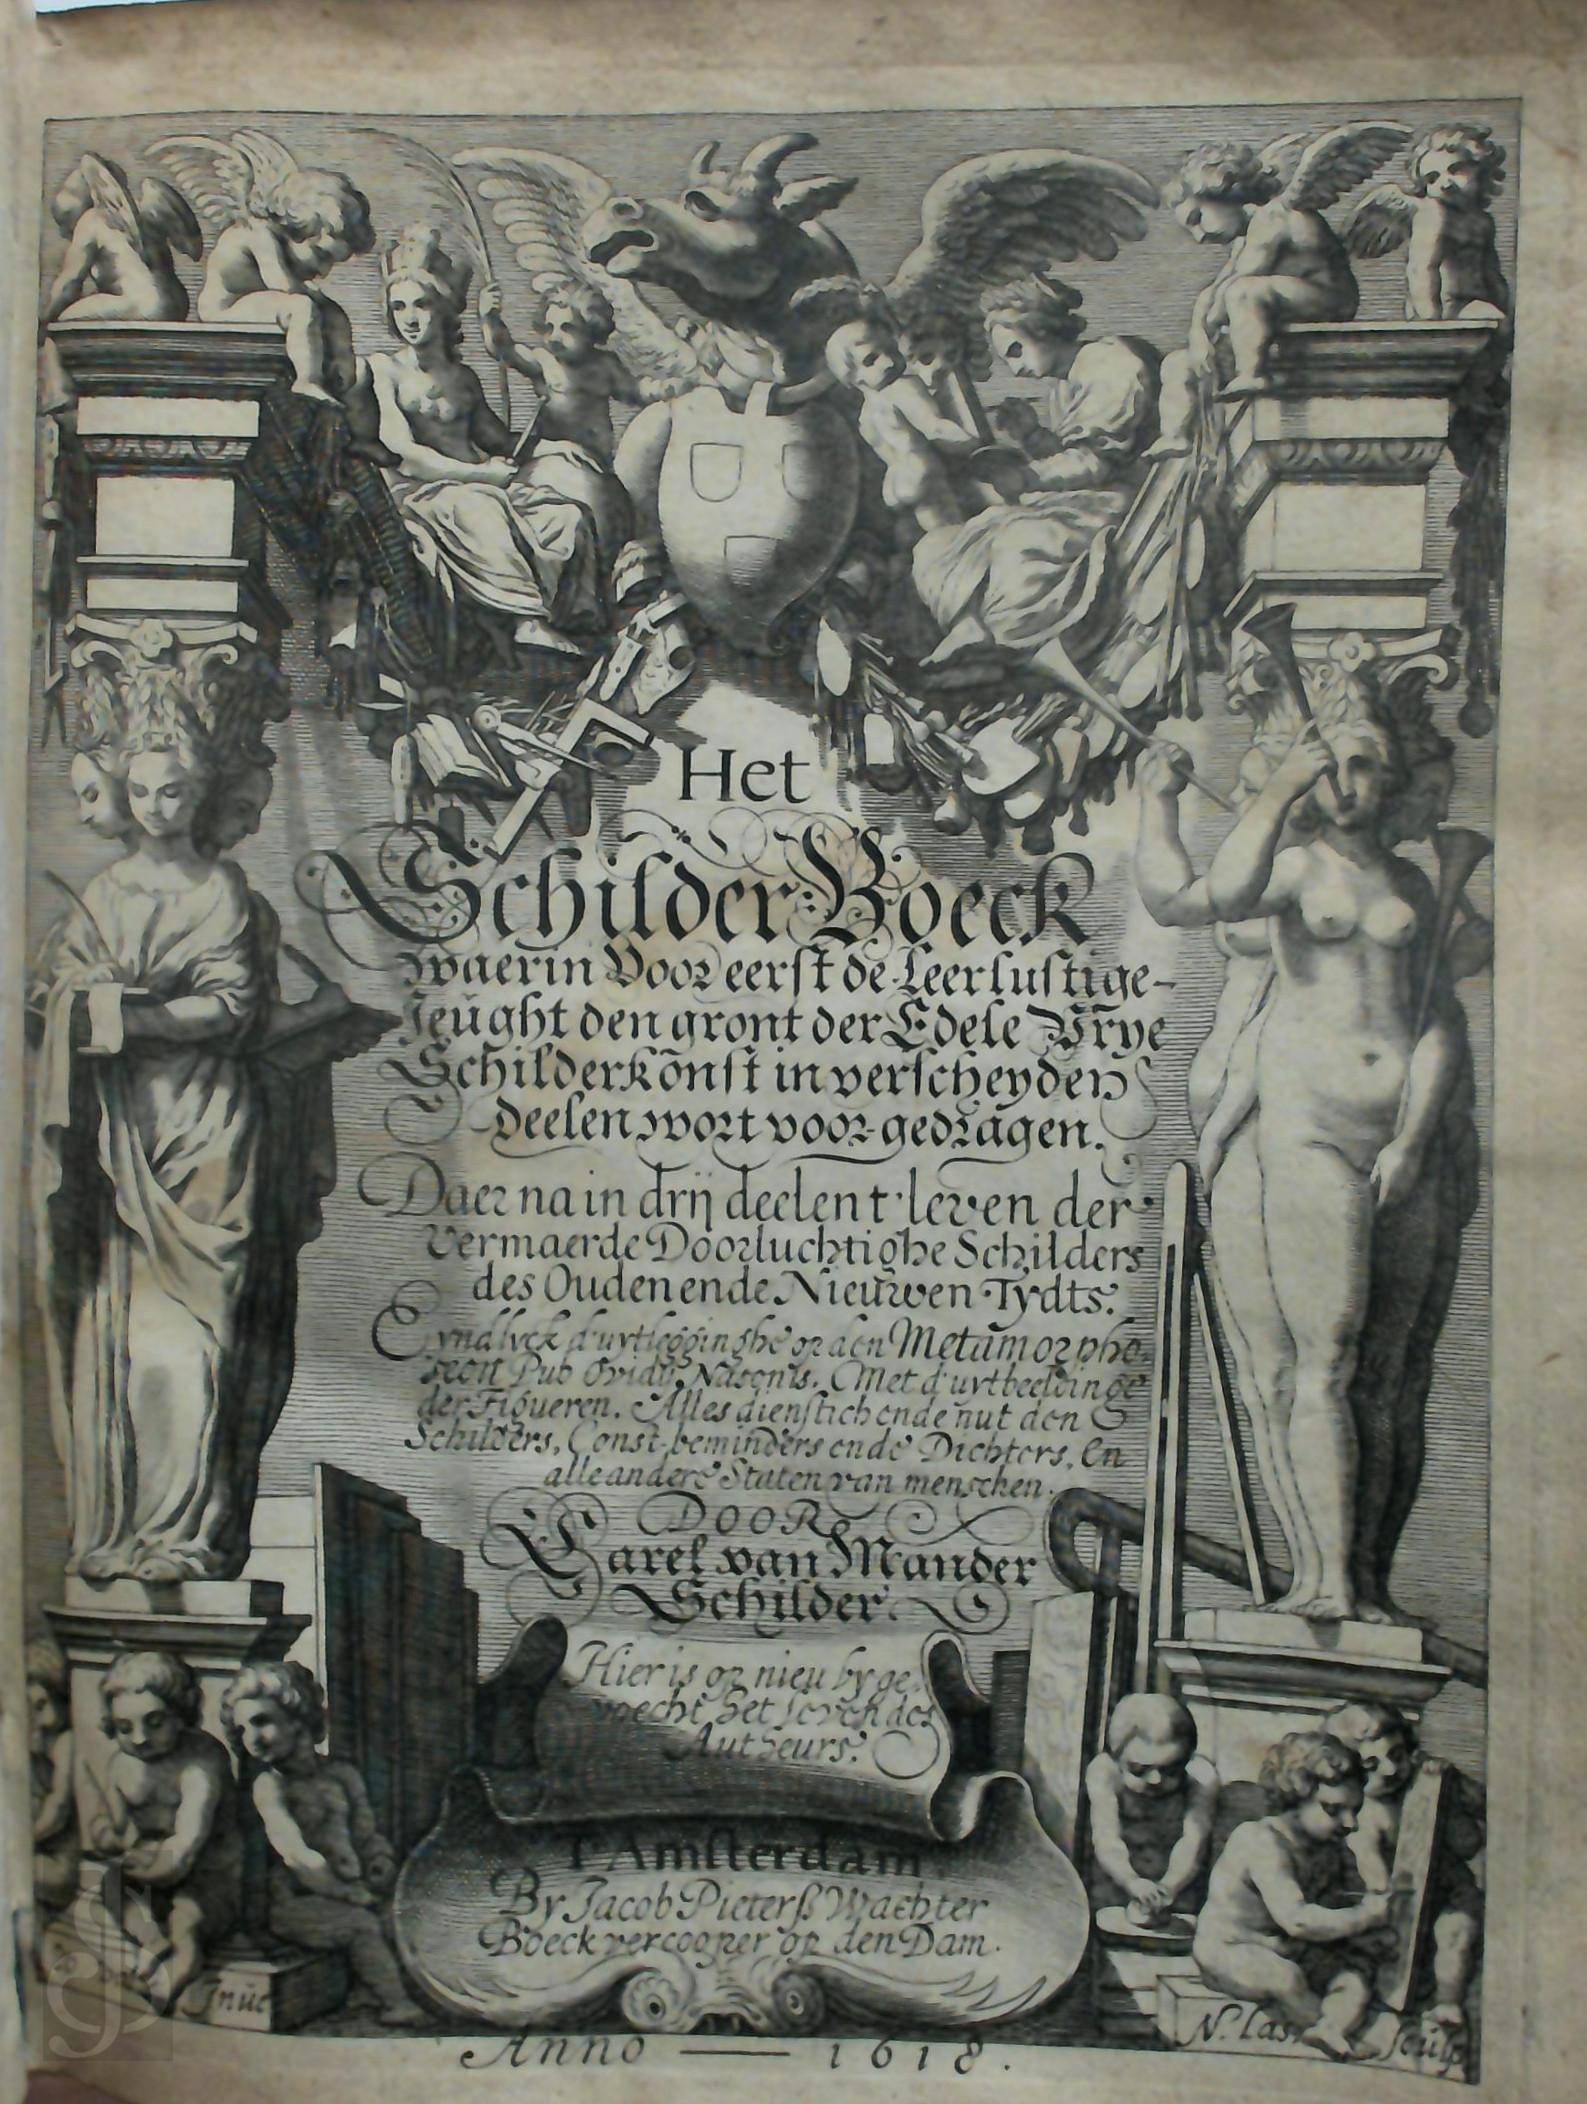 Het
Schilder-Boeck
waerin Voor eerst de leerlustige-
Ieught den gront der Edele Vrye
Schilderkonst in verscheyden
deelen wort voor-gedragen.
Daer na in drij deelen t'leven der
vermaerde Doorluchtighe Schilders
des Ouden ende Nieuwen Tydts.
Eyndlyck d'uytlegginghe op den Metamorpho-
seon Pub Ovidij Nasonis. Met d'uytbeeldinge
der Figueren. Alles dienstich ende nut den
Schilders, Const-beminders ende Dichters, En
alle andere Staten van menschen.
DOOR
Carel van Mander
Schilder.
Hier is op nieu by ge-
voecht het leven des
Autheurs.
T'Amsterdam
By Jacob Pieterß Wachter
Boeckvercooper op den Dam.
Inue
N. Las. Sculp
Anno — 1618.